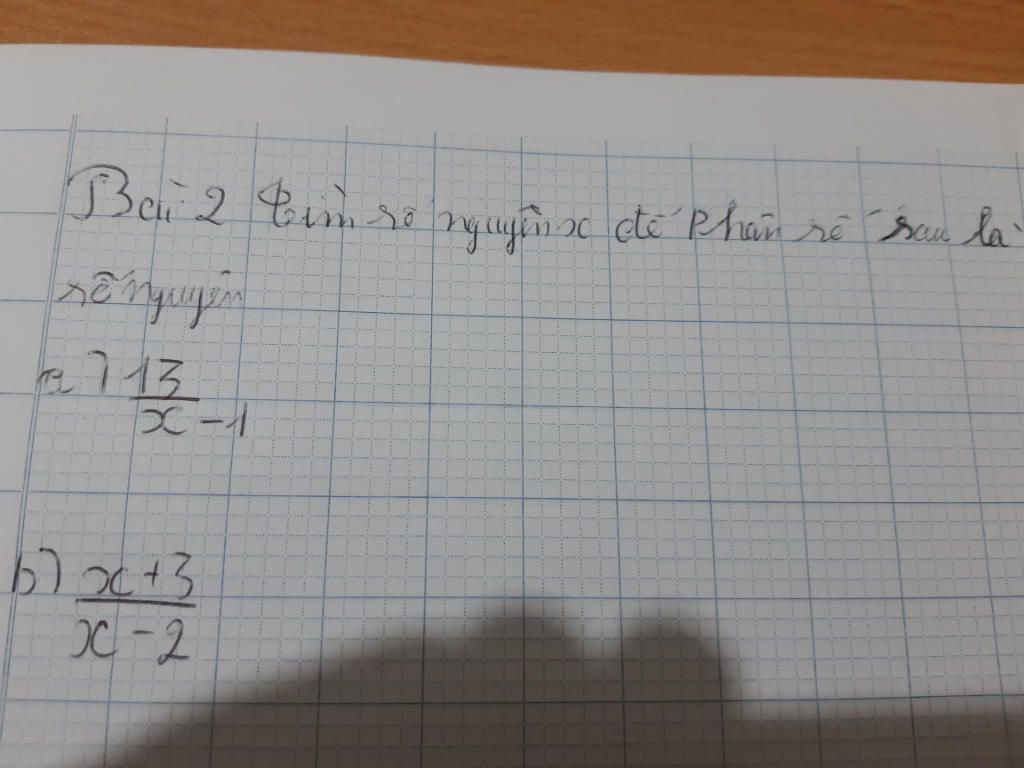 Bài 2 tìm số nguyên x để phân số sau là
số nguyên
a) 13
x - 1
b) x + 3
x - 2